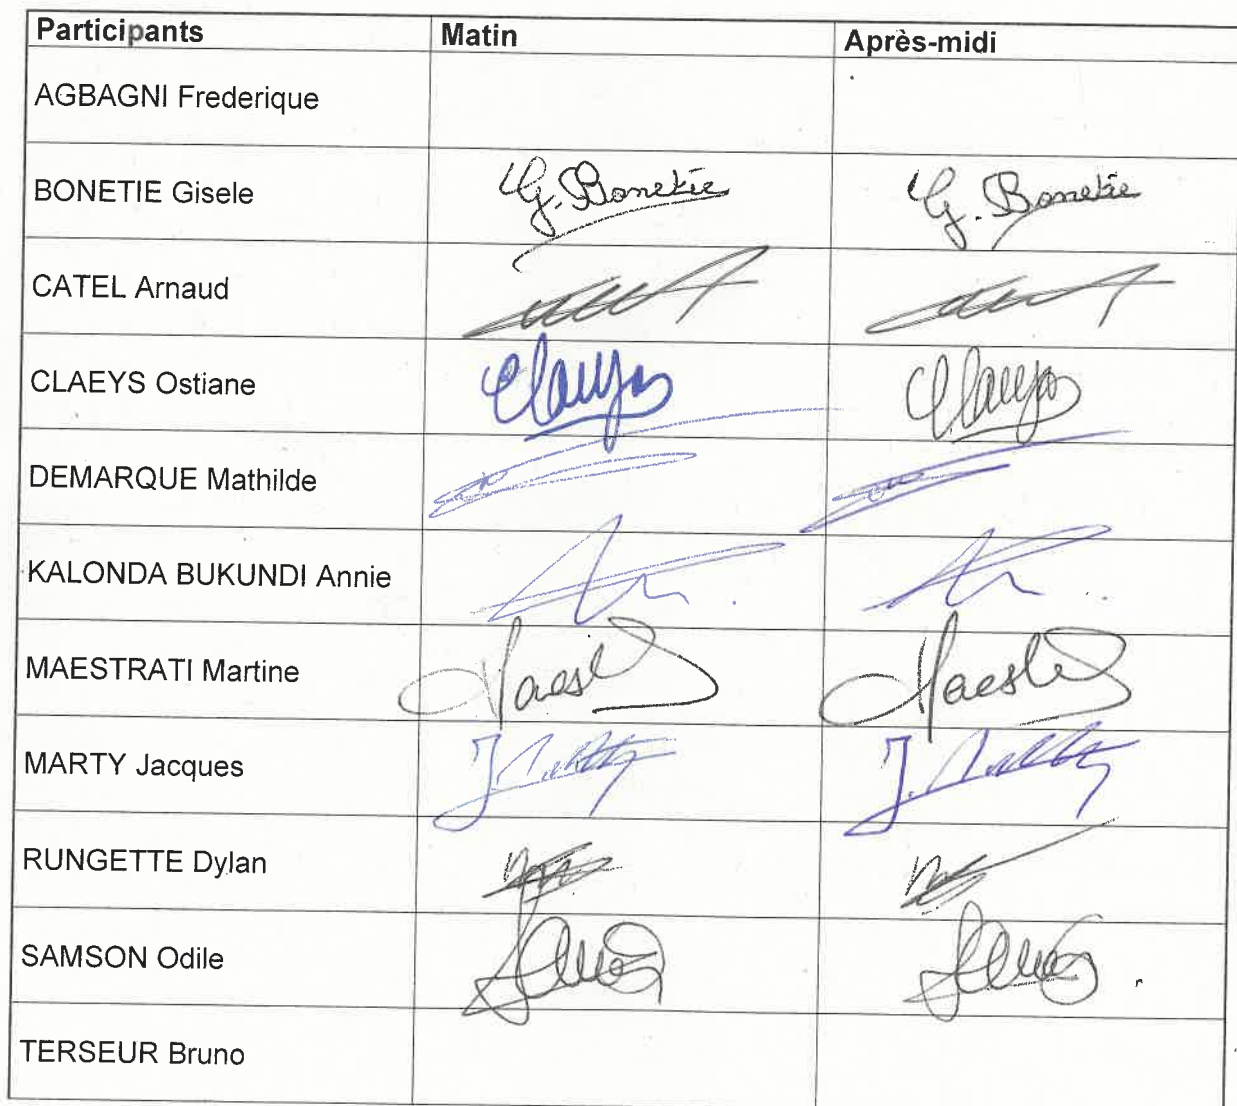 Participants Matin Après-midi
AGBAGNI Frederique
BONETIE Gisele G. Bonetie G. Bonetie
CATEL Arnaud
CLAEYS Ostiane Claeys Claeys
DEMARQUE Mathilde
KALONDA BUKUNDI Annie
MAESTRATI Martine
MARTY Jacques
RUNGETTE Dylan
SAMSON Odile
TERSEUR Bruno